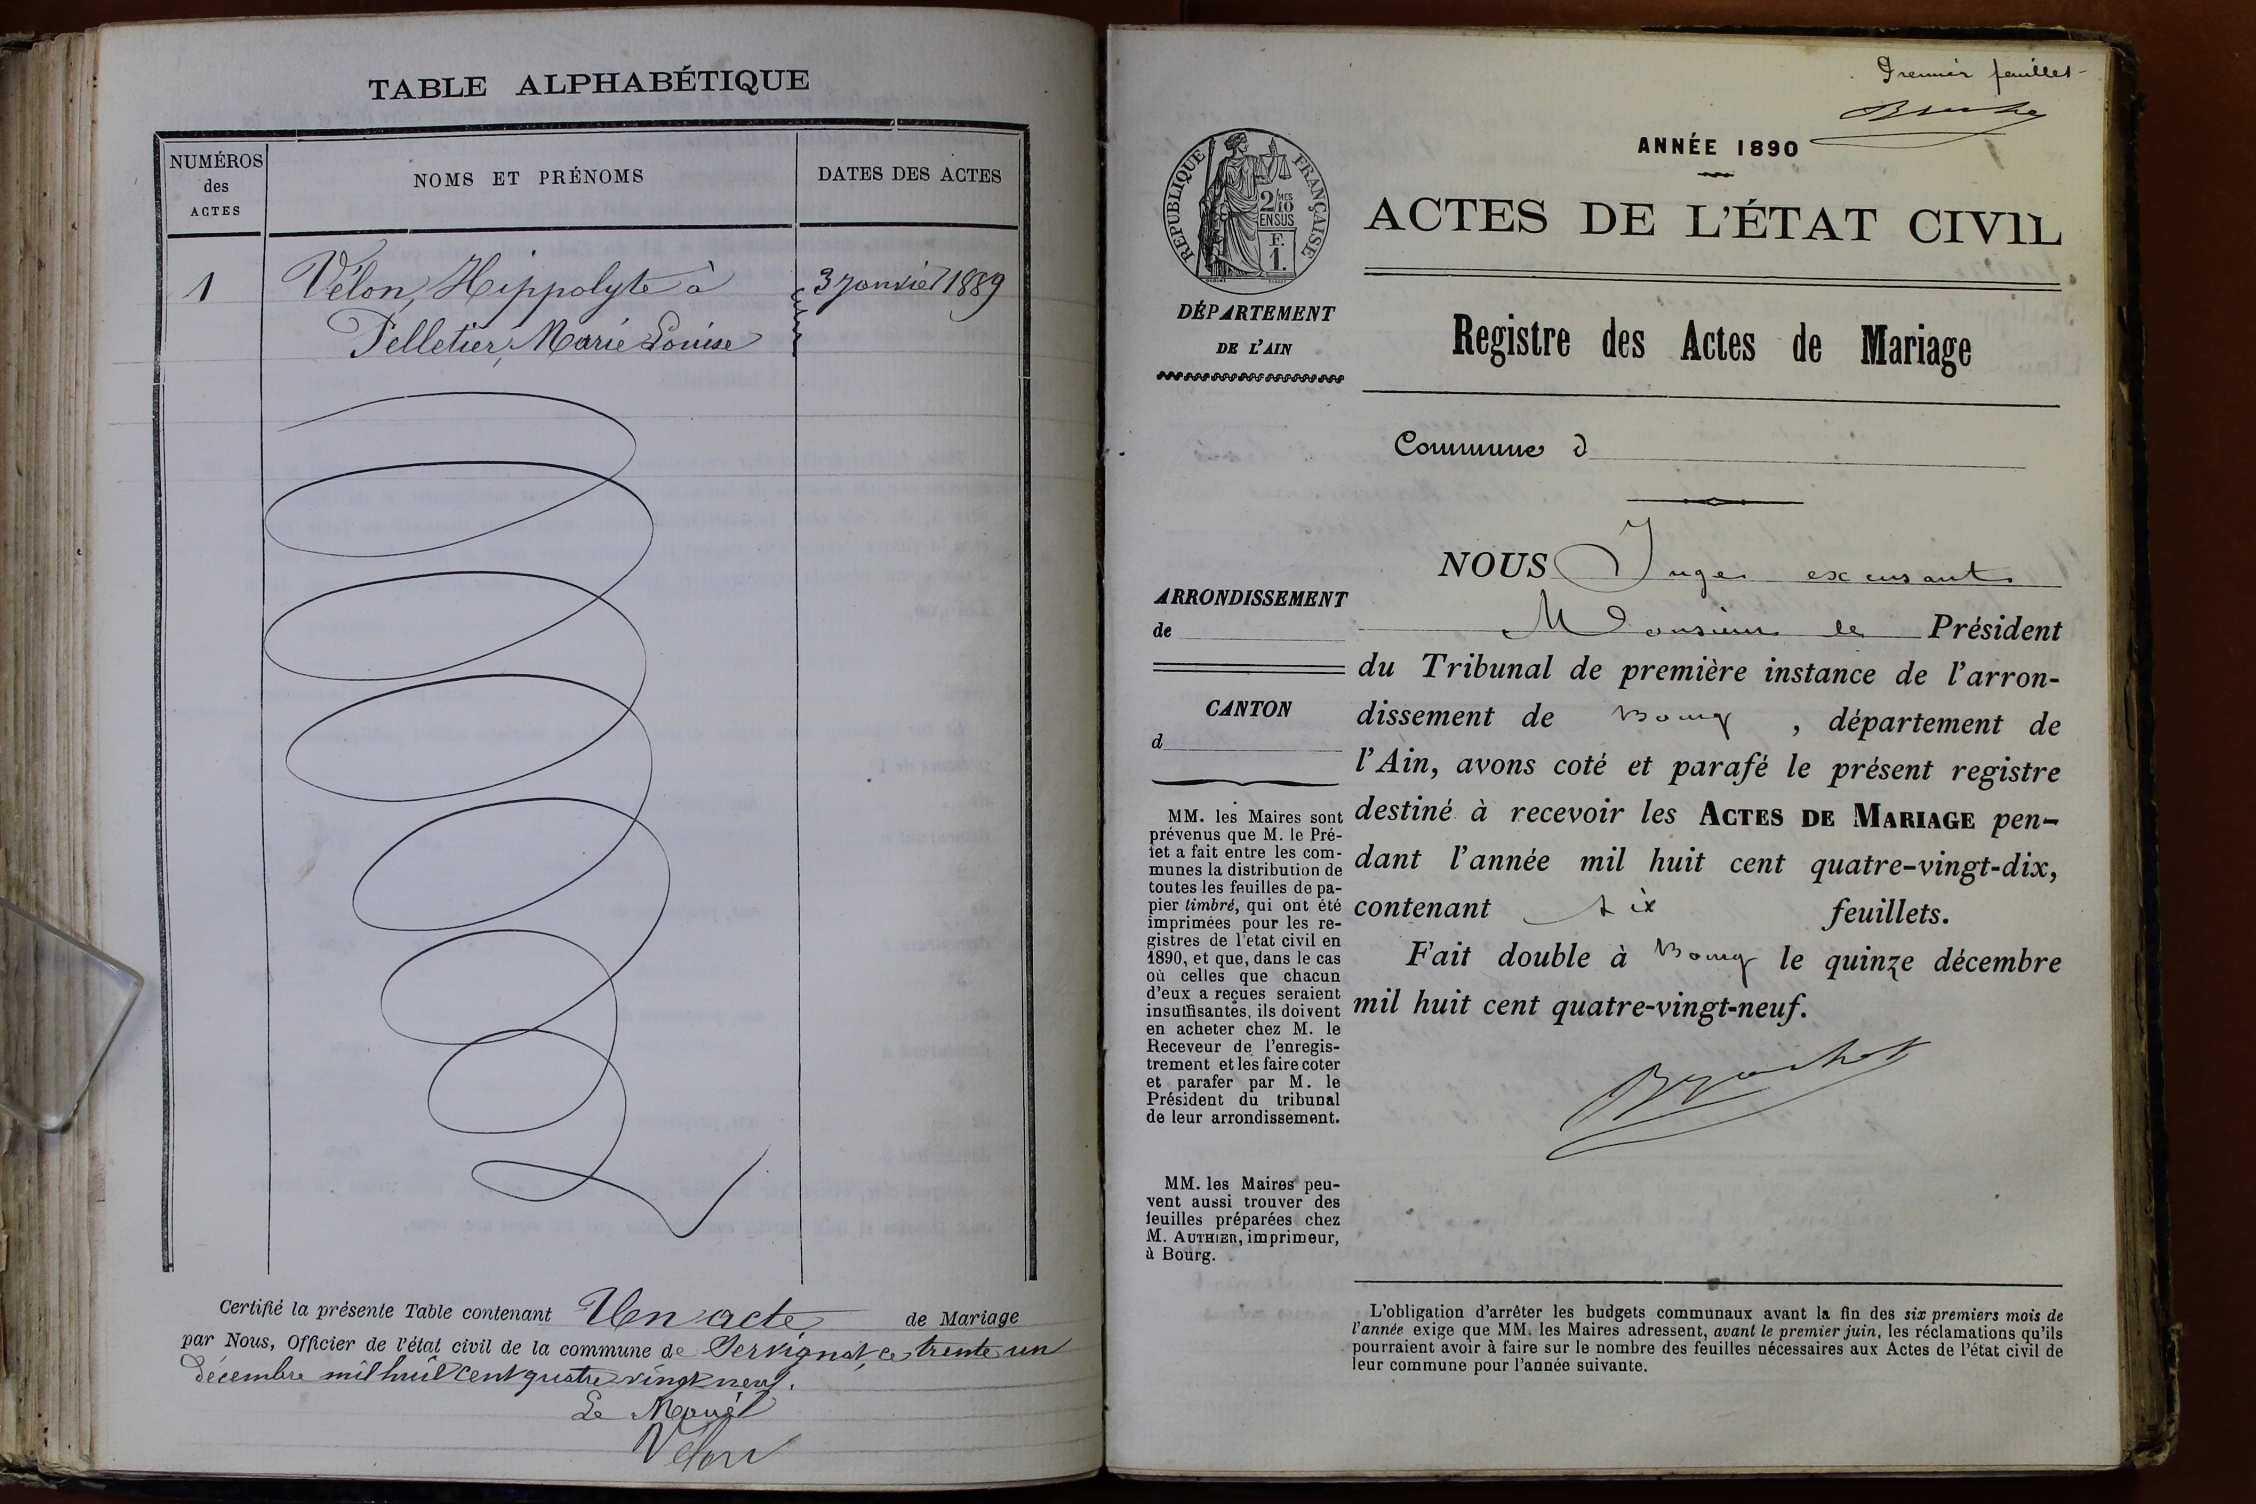 TABLE ALPHABÉTIQUE
NUMÉROS
des
ACTES
NOMS ET PRÉNOMS
DATES DES ACTES
1
Vélon, Hippolyte à
3 Janvier 1889
Pelletier, Marie Louise
Certifié la présente Table contenant Un acte de Mariage
par Nous, Officier de l'état civil de la commune de Servignat, ce trente un
décembre mil huit cent quatre vingt neuf.
Le
Vélon
Premier feuillet
ANNÉE 1890
RÉPUBLIQUE FRANÇAISE
2/10MES
EN SUS
F.
1.
ACTES DE L'ÉTAT CIVIL
DÉPARTEMENT
DE L'AIN
Registre des Actes de Mariage
Commune d
ARRONDISSEMENT
de
CANTON
d
MM. les Maires sont
prévenus que M. le Pré-
fet a fait entre les com-
munes la distribution de
toutes les feuilles de pa-
pier timbré, qui ont été
imprimées pour les re-
gistres de l'etat civil en
1890, et que, dans le cas
où celles que chacun
d'eux a reçues seraient
insuffisantes, ils doivent
en acheter chez M. le
Receveur de l'enregis-
trement et les faire coter
et parafer par M. le
Président du tribunal
de leur arrondissement.
MM. les Maires peu-
vent aussi trouver des
feuilles préparées chez
M. AUTHIER, imprimeur,
à Bourg.
NOUS Juge excusant
Monsieur le Président
du Tribunal de première instance de l'arron-
dissement de Bourg, département de
l'Ain, avons coté et parafé le présent registre
destiné à recevoir les ACTES DE MARIAGE pen-
dant l'année mil huit cent quatre-vingt-dix,
contenant six feuillets.
Fait double à Bourg le quinze décembre
mil huit cent quatre-vingt-neuf.
L'obligation d'arrêter les budgets communaux avant la fin des six premiers mois de
l'année exige que MM. les Maires adressent, avant le premier juin, les réclamations qu'ils
pourraient avoir à faire sur le nombre des feuilles nécessaires aux Actes de l'état civil de
leur commune pour l'année suivante.